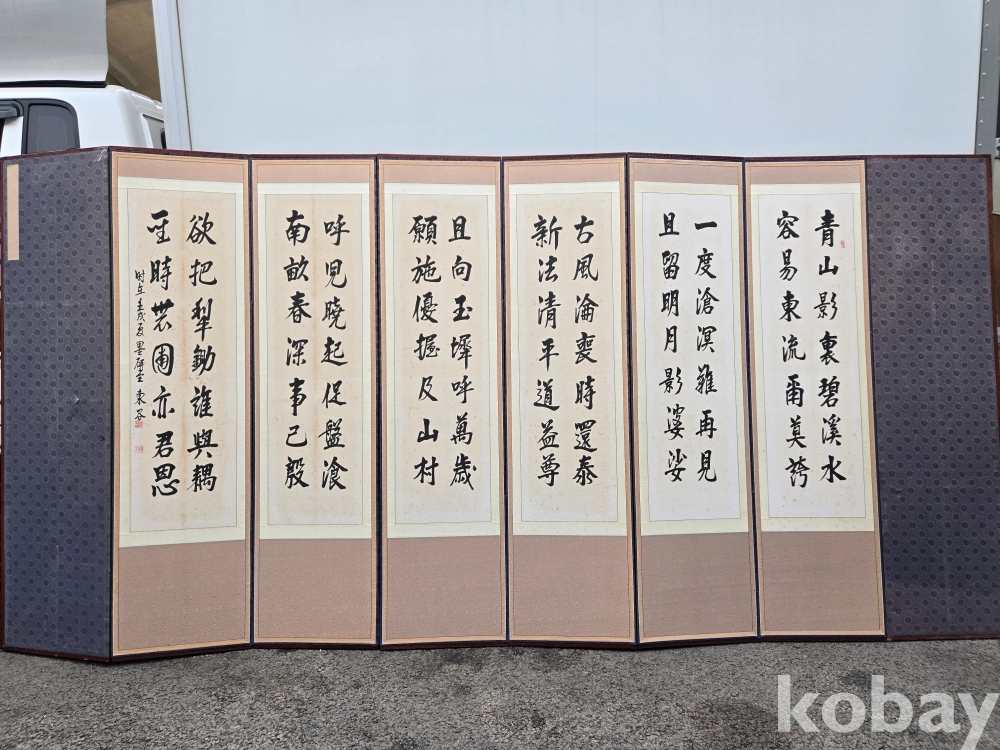 青山影裏碧溪水
容易東流爾莫誇
一度滄溟難再見
且留明月影婆娑
古風淪喪時還泰
新法清平道益尊
且向玉墀呼萬歲
願施優握及山村
呼児曉起促盤飡
南畝春深事已殷
欲把犁鋤誰與耦
聖時農圃亦君恩
時在壬戌夏墨研堂 東谷
kobay